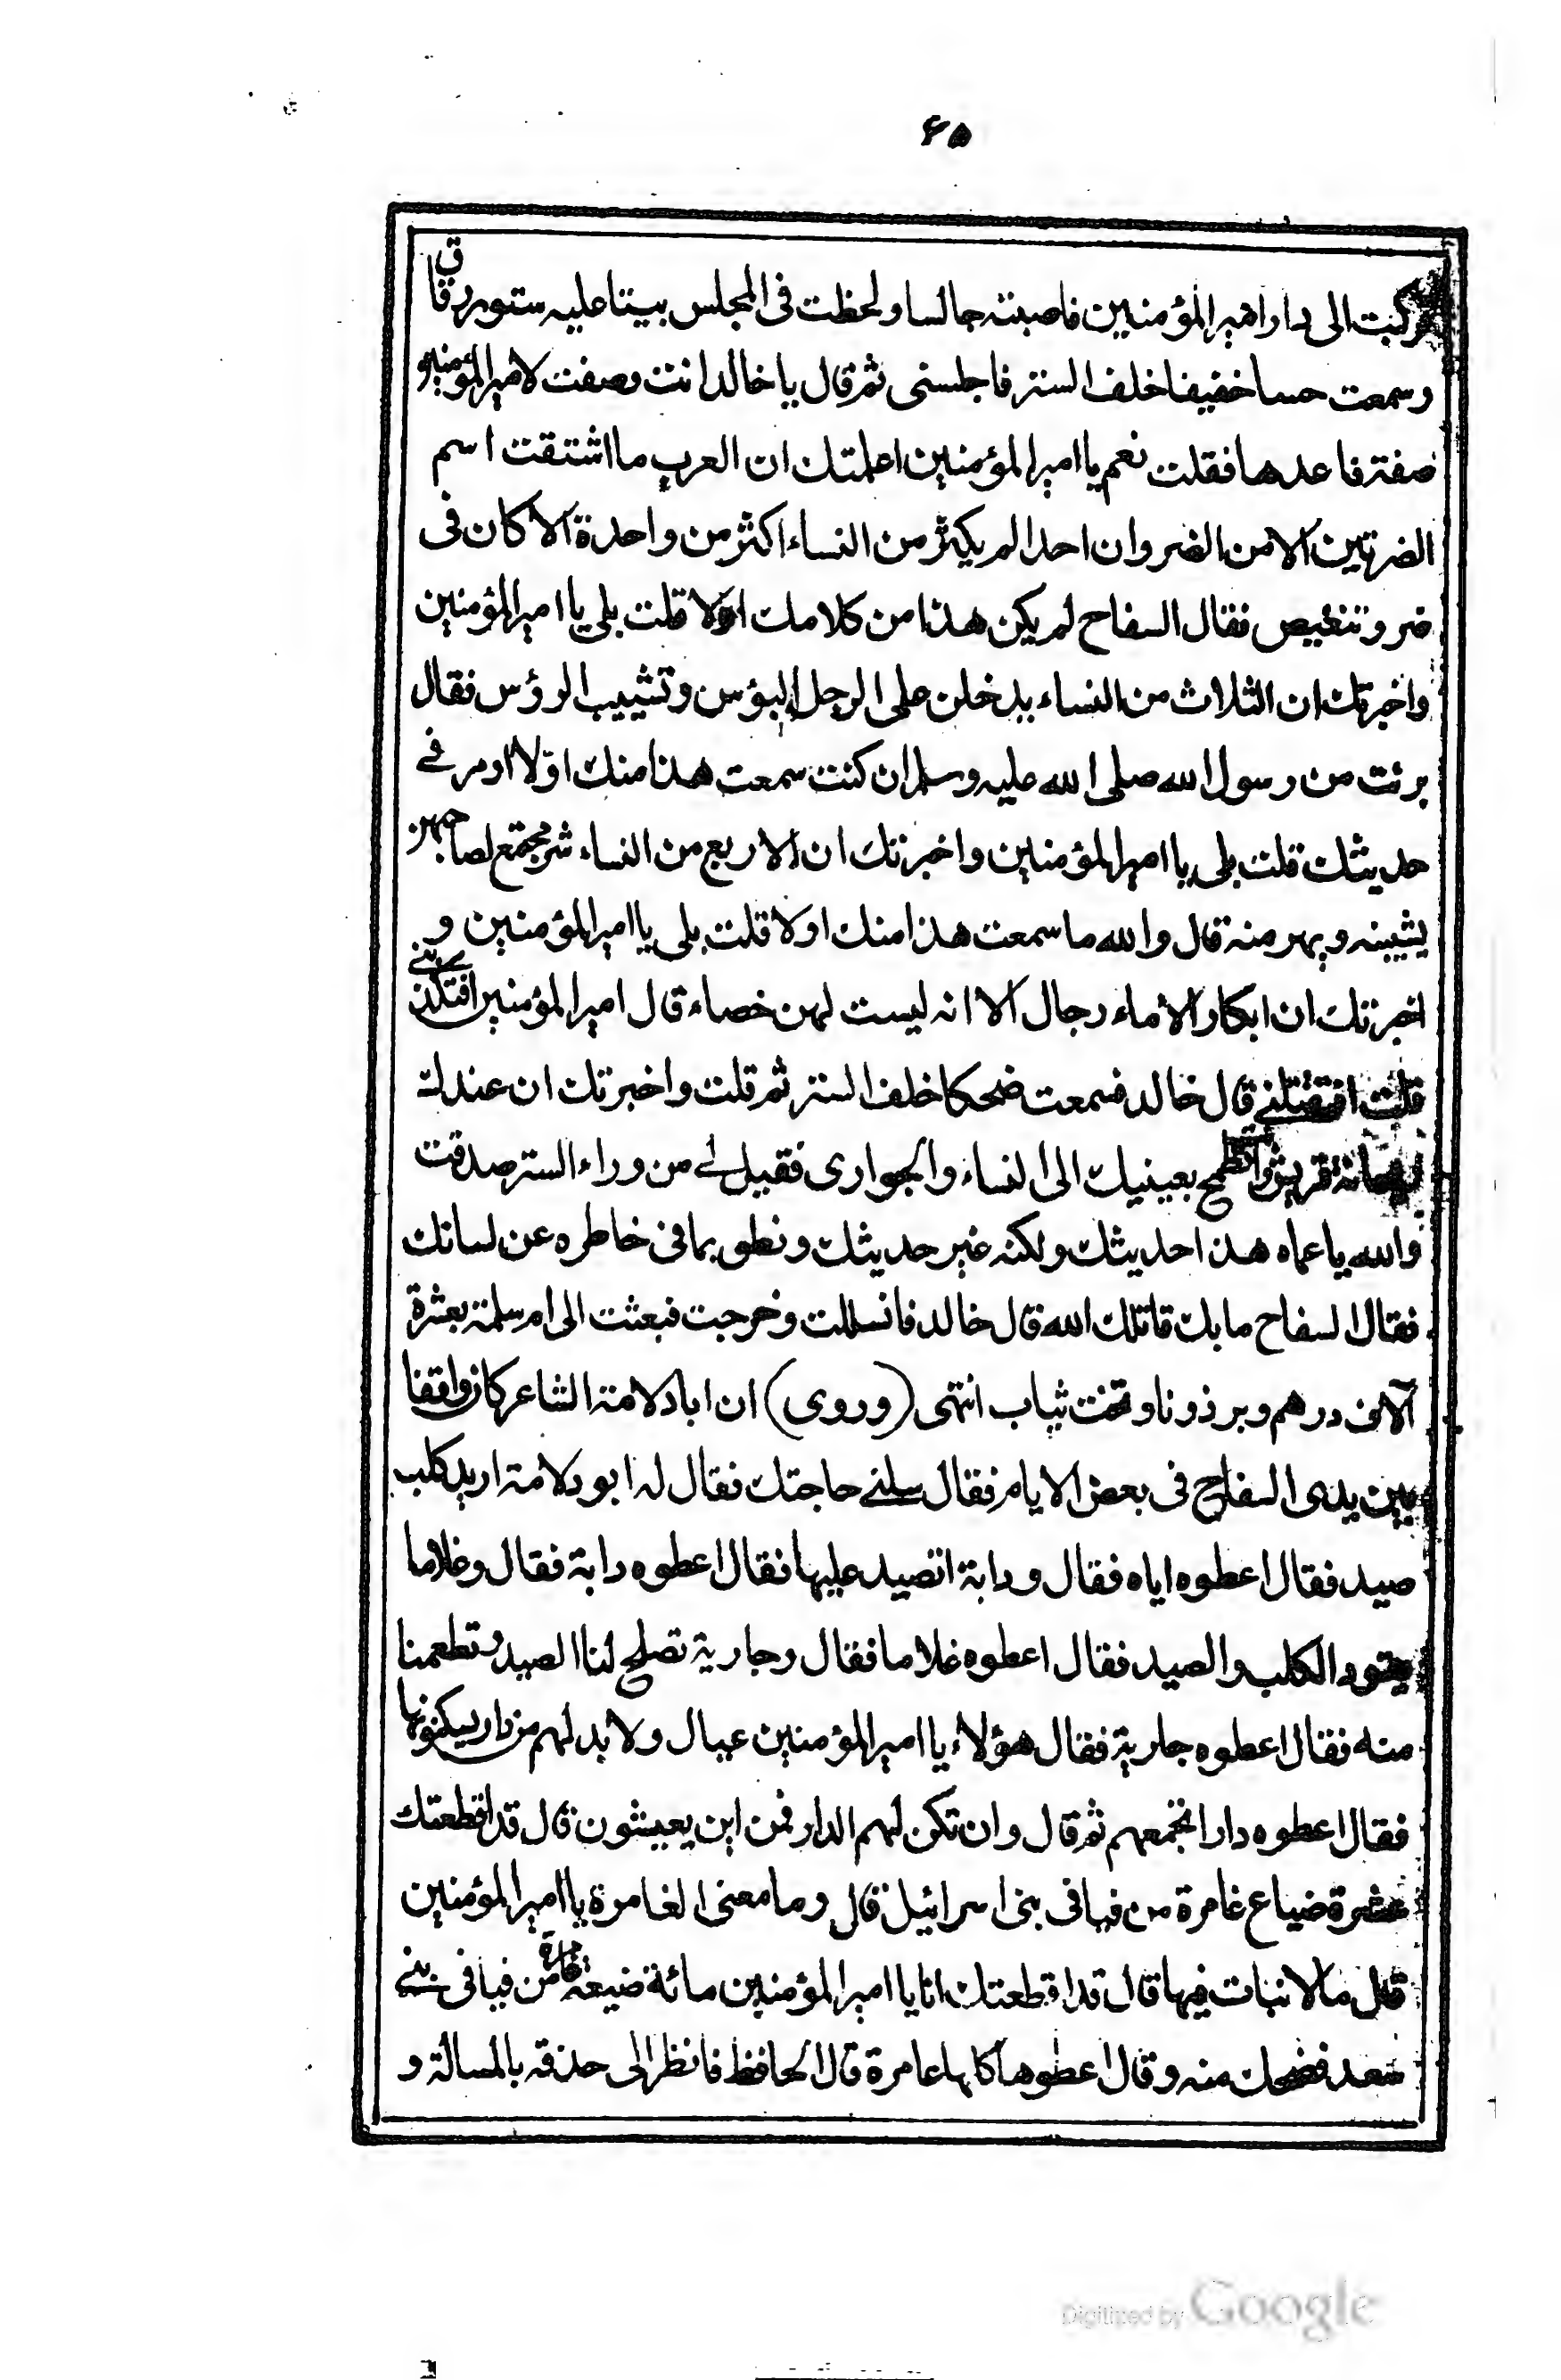 ۶۵
فركبت الى دار امير المؤمنين فاصبته جالسا ولحظت فى المجلس بيتا عليه ستور رقاق
وسمعت حسا خفيفا خلف الستر فاجلسنى ثم قال يا خالد انت وصفت لامير المؤمنين
صفة فاعدها فقلت نعم يا امير المؤمنين اعلمتك ان العرب ما اشتقت اسم
الضرتين الا من الضر وان احدا لم يكثر من النساء اكثر من واحدة الا كان فى
ضر وتنغيص فقال السفاح لم يكن هذا من كلامك اولا قلت بلى يا امير المؤمنين
واخبرتك ان الثلاث من النساء يدخلن على الرجل البؤس وتشييب الرؤس فقال
برئت من رسول الله صلى الله عليه وسلم ان كنت سمعت هذا منك اولا او مر فى
حديثك قلت بلى يا امير المؤمنين واخبرتك ان الاربع من النساء شر مجتمع لصاحبهن
يشيبنه ويهرمنه قال والله ما سمعت هذا منك اولا قلت بلى يا امير المؤمنين و
اخبرتك ان ابكار الاماء رجال الا انه ليست لهن خصاء قال امير المؤمنين افتكذبنى
قلت افتقتلنى قال خالد فسمعت ضحكا خلف الستر ثم قلت واخبرتك ان عندك
ريحانة قريش وتطمح بعينيك الى النساء والجوارى فقيل لى من وراء الستر صدقت
والله يا عماه هذا حديثك ولكنه غير حديثك ونطق بما فى خاطره عن لسانك
فقال السفاح ما بك قاتلك الله قال خالد فانسللت وخرجت فبعثت الى ام سلمة بعشرة
آلاف درهم وبرذونا وتخت ثياب انتهى (وروى) ان ابا دلامة الشاعر كان واقفا
بين يدى السفاح فى بعض الايام فقال سلنى حاجتك فقال له ابو دلامة اريد كلب
صيد فقال اعطوه اياه فقال ودابة اتصيد عليها فقال اعطوه دابة فقال وغلاما
يقود الكلب والصيد فقال اعطوه غلاما فقال وجارية تصلح لنا الصيد وتطعمنا
منه فقال اعطوه جارية فقال هؤلاء يا امير المؤمنين عيال ولا بد لهم من دار يسكنونها
فقال اعطوه دارا تجمعهم ثم قال وان تكن لهم الدار فمن اين يعيشون قال قد اقطعتك
عشرة ضياع غامرة من فيافى بنى اسرائيل قال وما معنى الغامرة يا امير المؤمنين
قال مالا نبات فيها قال قد اقطعتك انا يا امير المؤمنين مائة ضيعة غامرة من فيافى بنى
سعد فضحك منه وقال اعطوها كلها عامرة قال الحافظ فانظر الى حذقه بالمسالة و
Digitized by Google